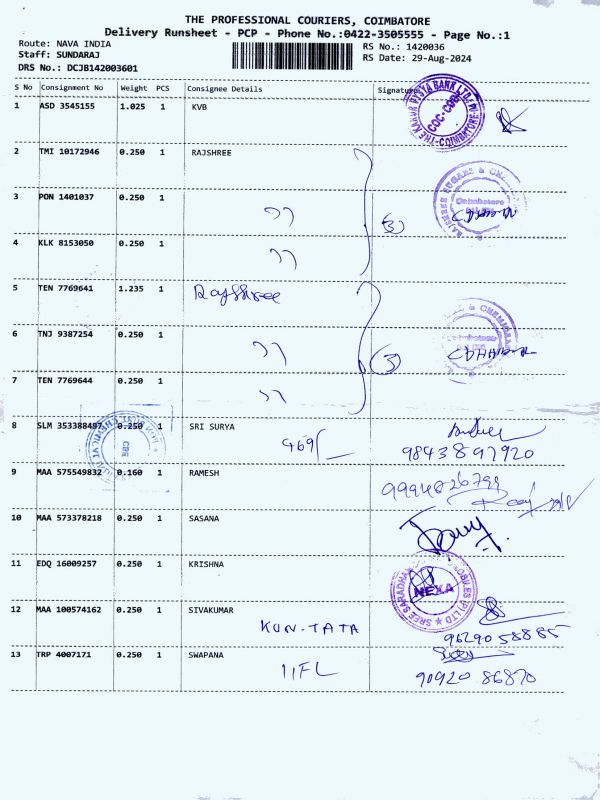 THE PROFESSIONAL COURIERS, COIMBATORE
Delivery Runsheet - PCP - Phone No.:0422-3505555 - Page No.:1
Route: NAVA INDIA
Staff: SUNDARAJ
DRS No.: DCJB142003601
RS No.: 1420036
RS Date: 29-Aug-2024
S No Consignment No Weight PCS Consignee Details Signature
THE KARUR VYSYA BANK LTD
COC-COB
COIMBATORE
1 ASD 3545155 1.025 1 KVB
2 TMI 10172946 0.250 1 RAJSHREE
RAJSHREE SUGARS & CHEM
Coimbatore
3 PON 1401037 0.250 1 " (3)
4 KLK 8153050 0.250 1 "
5 TEN 7769641 1.235 1 Rajshree
& CHEMICALS
Coimbatore
6 TNJ 9387254 0.250 1 " (3)
7 TEN 7769644 0.250 1 "
8 SLM 353388497 0.250 1 SRI SURYA
469/-
9843897920
CBE
9 MAA 575549832 0.160 1 RAMESH
9994826799
10 MAA 573378218 0.250 1 SASANA
11 EDQ 16009257 0.250 1 KRISHNA
NEXA
SREE SARADHA MOBILES (P) LTD
12 MAA 100574162 0.250 1 SIVAKUMAR
KUN-TATA
96290 58885
13 TRP 4007171 0.250 1 SWAPANA
IIFL
90920 86870